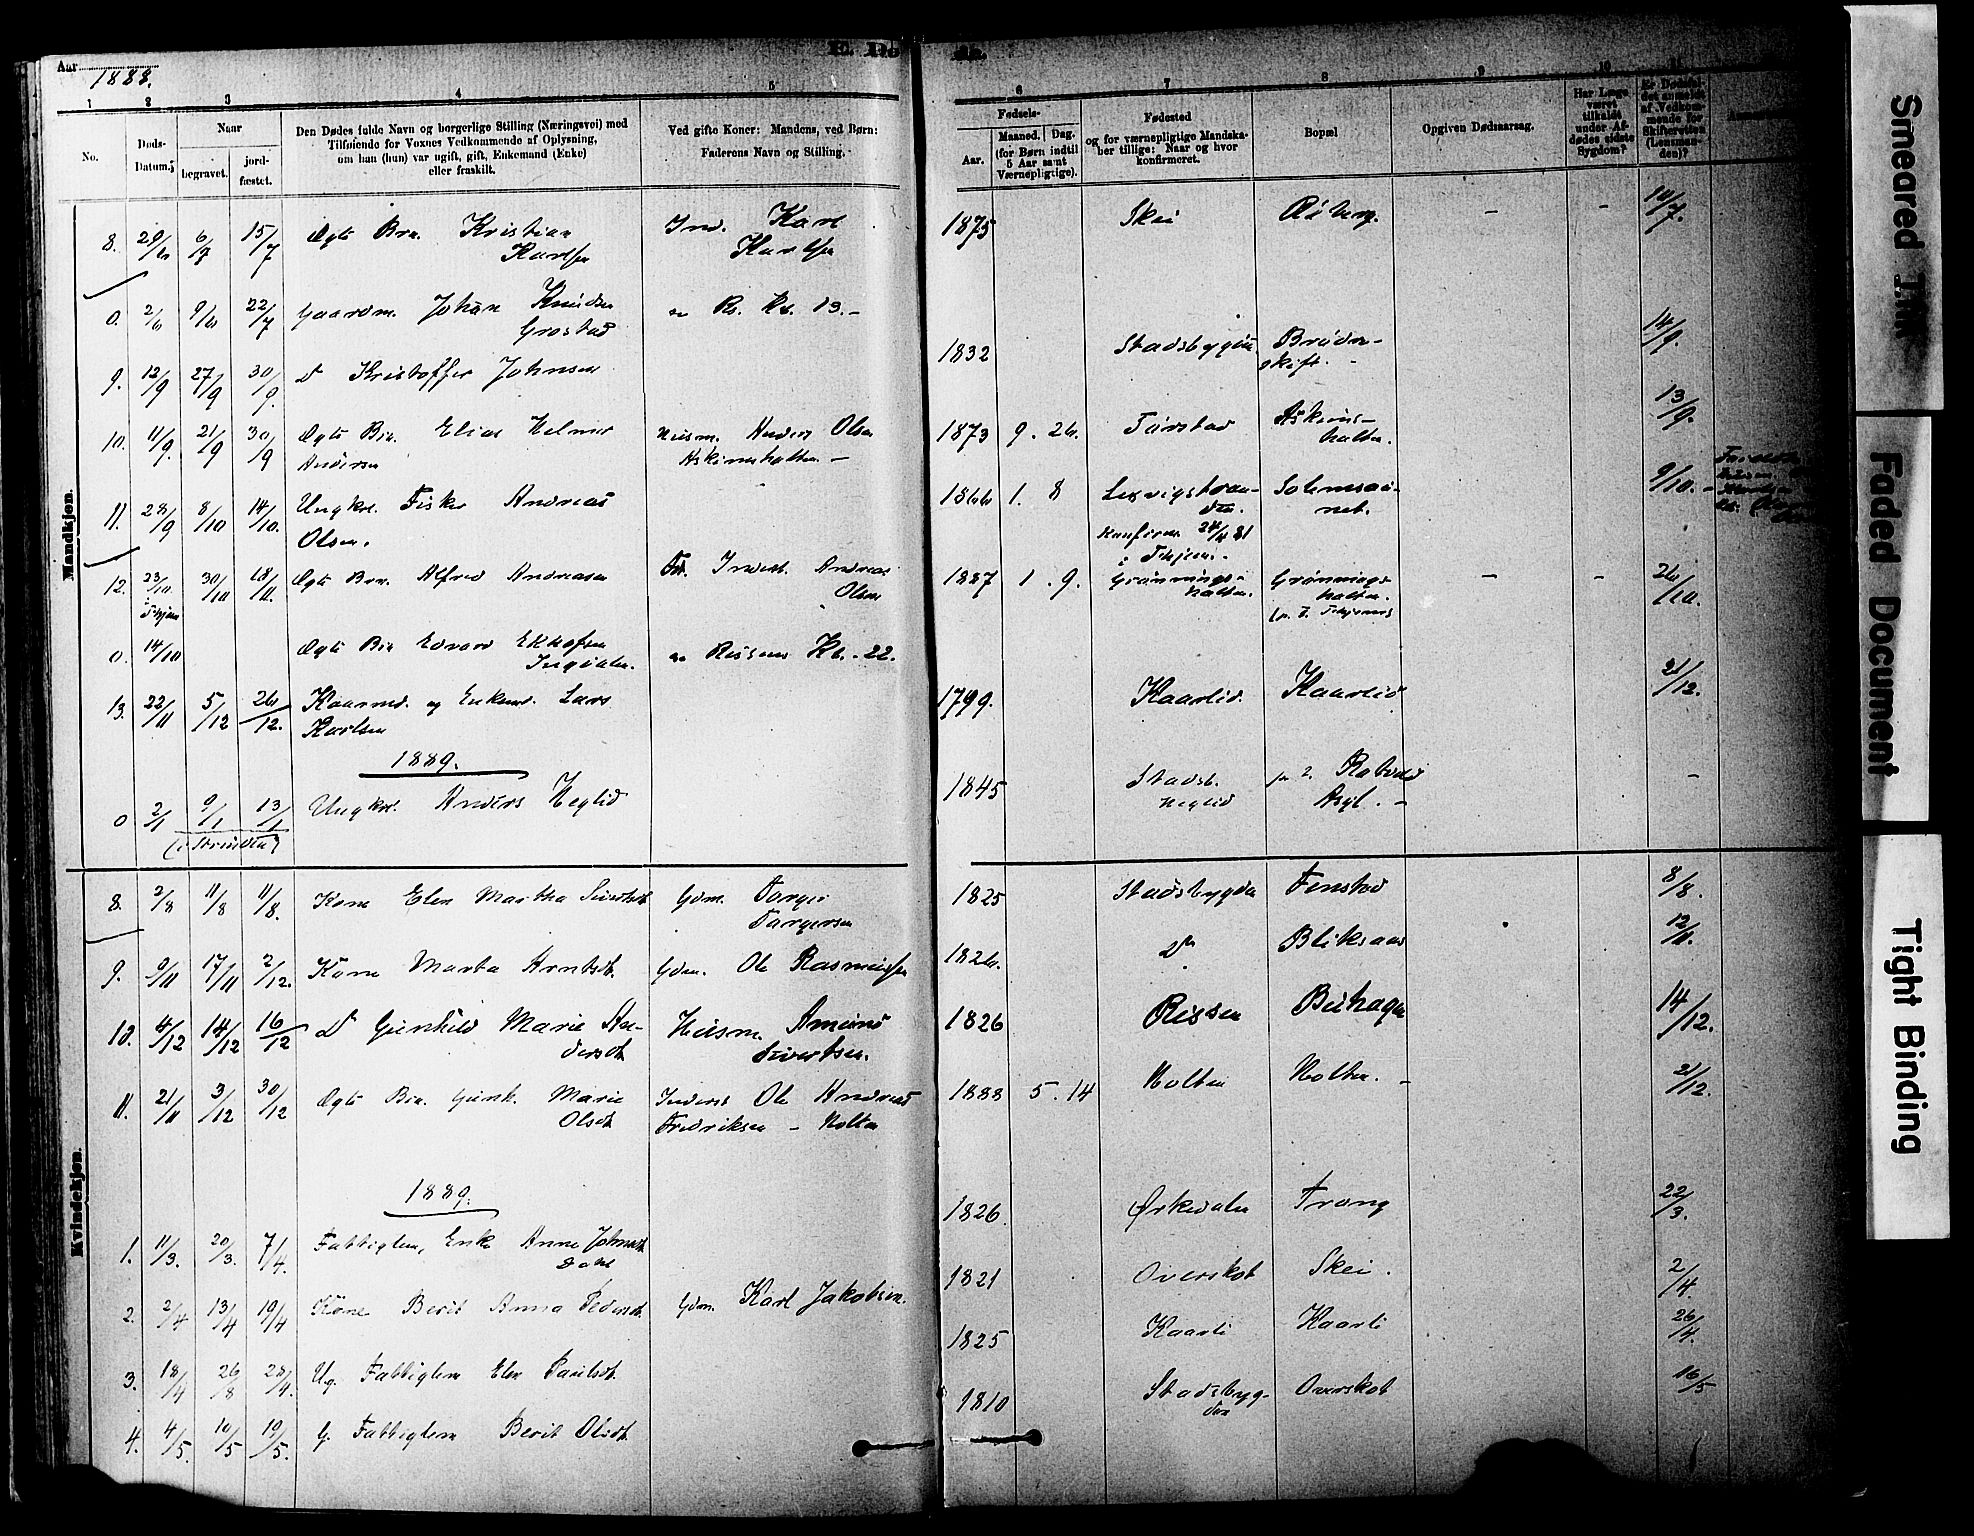 E. Dø
de.
Aar 1888.
1 2 3 4 5 6 7 8 9 10 11
No.
Døds-Datum.
Naar
begravet.
jord-fæstet.
Den Dødes fulde Navn og borgerlige Stilling (Næringsvei) med
Tilføiende for Voxnes Vedkommende af Oplysning,
om han (hun) var ugift, gift, Enkemand (Enke)
eller fraskilt.
Ved gifte Koner: Mandens, ved Børn:
Faderens Navn og Stilling.
Fødsels-
Aar.
Maaned. Dag.
(for Børn indtil
5 Aar samt
Værnepligtige).
Fødested
og for værnepligtige Mandska-
ber tillige: Naar og hvor
konfirmeret.
Bopæl
Opgiven Dødsaarsag.
Har Læge
været
tilkaldt
under Af-
dødes sidste
Sygdom?
Er Dødsfal-
det anmeldt
af Vedkom-
mende for
Skifteretten
(Lensman-
den)?
Mandkjøn.
8. 6/7 15/7 Ægte Brn. Kristian Karlsen Ind. Karl Karlsen 1875 Skei – – 14/7.
0. 2/6 9/6 22/7 Gaardm. Johan Knudsen Grøstad Rs. Kb. 13. –
9. 12/9 27/9 30/9. Do Kristoffer Johnsen 1832 Stadsbygden 14/9.
10. 11/9. 21/9 30/9 Ægte Brn. Elias Helmer Andersen Husm. Anders Olsen Askimsholten. – 1873 9. 26. Askims-holten. 13/9.
11. 28/9 8/10 14/10. Ungkrl. Fisker Andreas Olsen. 1866 1. 8 Lexvigstran-den. Konfirm. i Thjem. 9/10. –
12. 23/10. i Thjem 30/10 18/11. Ægte Brn. Alfred Andreasen Indert. Andreas Olsen 1887 1. 9. Grønnings-holten. Grønnings-holten. – – 26/10.
0. 14/10 Ægte Brn Edvard Rissens Kb. - 22.
13. 22/11 5/12 26/12. Kaarmd. og Enkemd. Lars Karlsen 1799. Kaarlid. Kaarlid 21/12.
1889.
0 2/1 9/1 13/1 (i Strinden) Ungkrl. Anders Heglid 1845 Stadsb. Heglid Rotvold Asyl. – –
Kvindekjøn.
8. 2/8 11/8 11/8. Kone Elen Martha Sivertsdt. Gdm. Torger Torgersen 1825 Stadsbygden Fenstad 8/8.
9. 9/11 17/11 2/12. Kone Marta Arntsdt. Gdm. Ole Rasmussen 1826. Do Bliksaas 12/11.
10. 4/12 14/12 16/12 Do Gunhild Marie An-dersdt. Husm. Amund Sivertsen. 1826 Rissen Bushagen 14/12.
11. 21/11 3/12 30/12 Ægte Brn. Gunh. Marie Olsdt. Inderst Ole Andreas Fredriksen – Holten 1888 5. 14 Holten Holten. – 21/12.
1889.
1. 11/3. 20/3. 7/4. Fattiglem, Enke Anne Johnsdt. Dahl 1826. Ørkedalen Trang 22/3.
2. 2/4 13/4 19/4 Kone Berit Anna Pedersdt. Gdm. Karl Jakobsen. 1821 Overskot Skei. 2/4.
3. 18/4 26/8 28/4. Ug. Fattiglem Elen Paulsdt. 1825 Kaarli Kaarli 26/4.
4. 4/5. 10/5 19/5. G. Fattiglem Berit Olsdt. 1810 Stadsbyg-den Overskot 16/5
Smeared Ink
Faded Document
Tight Binding